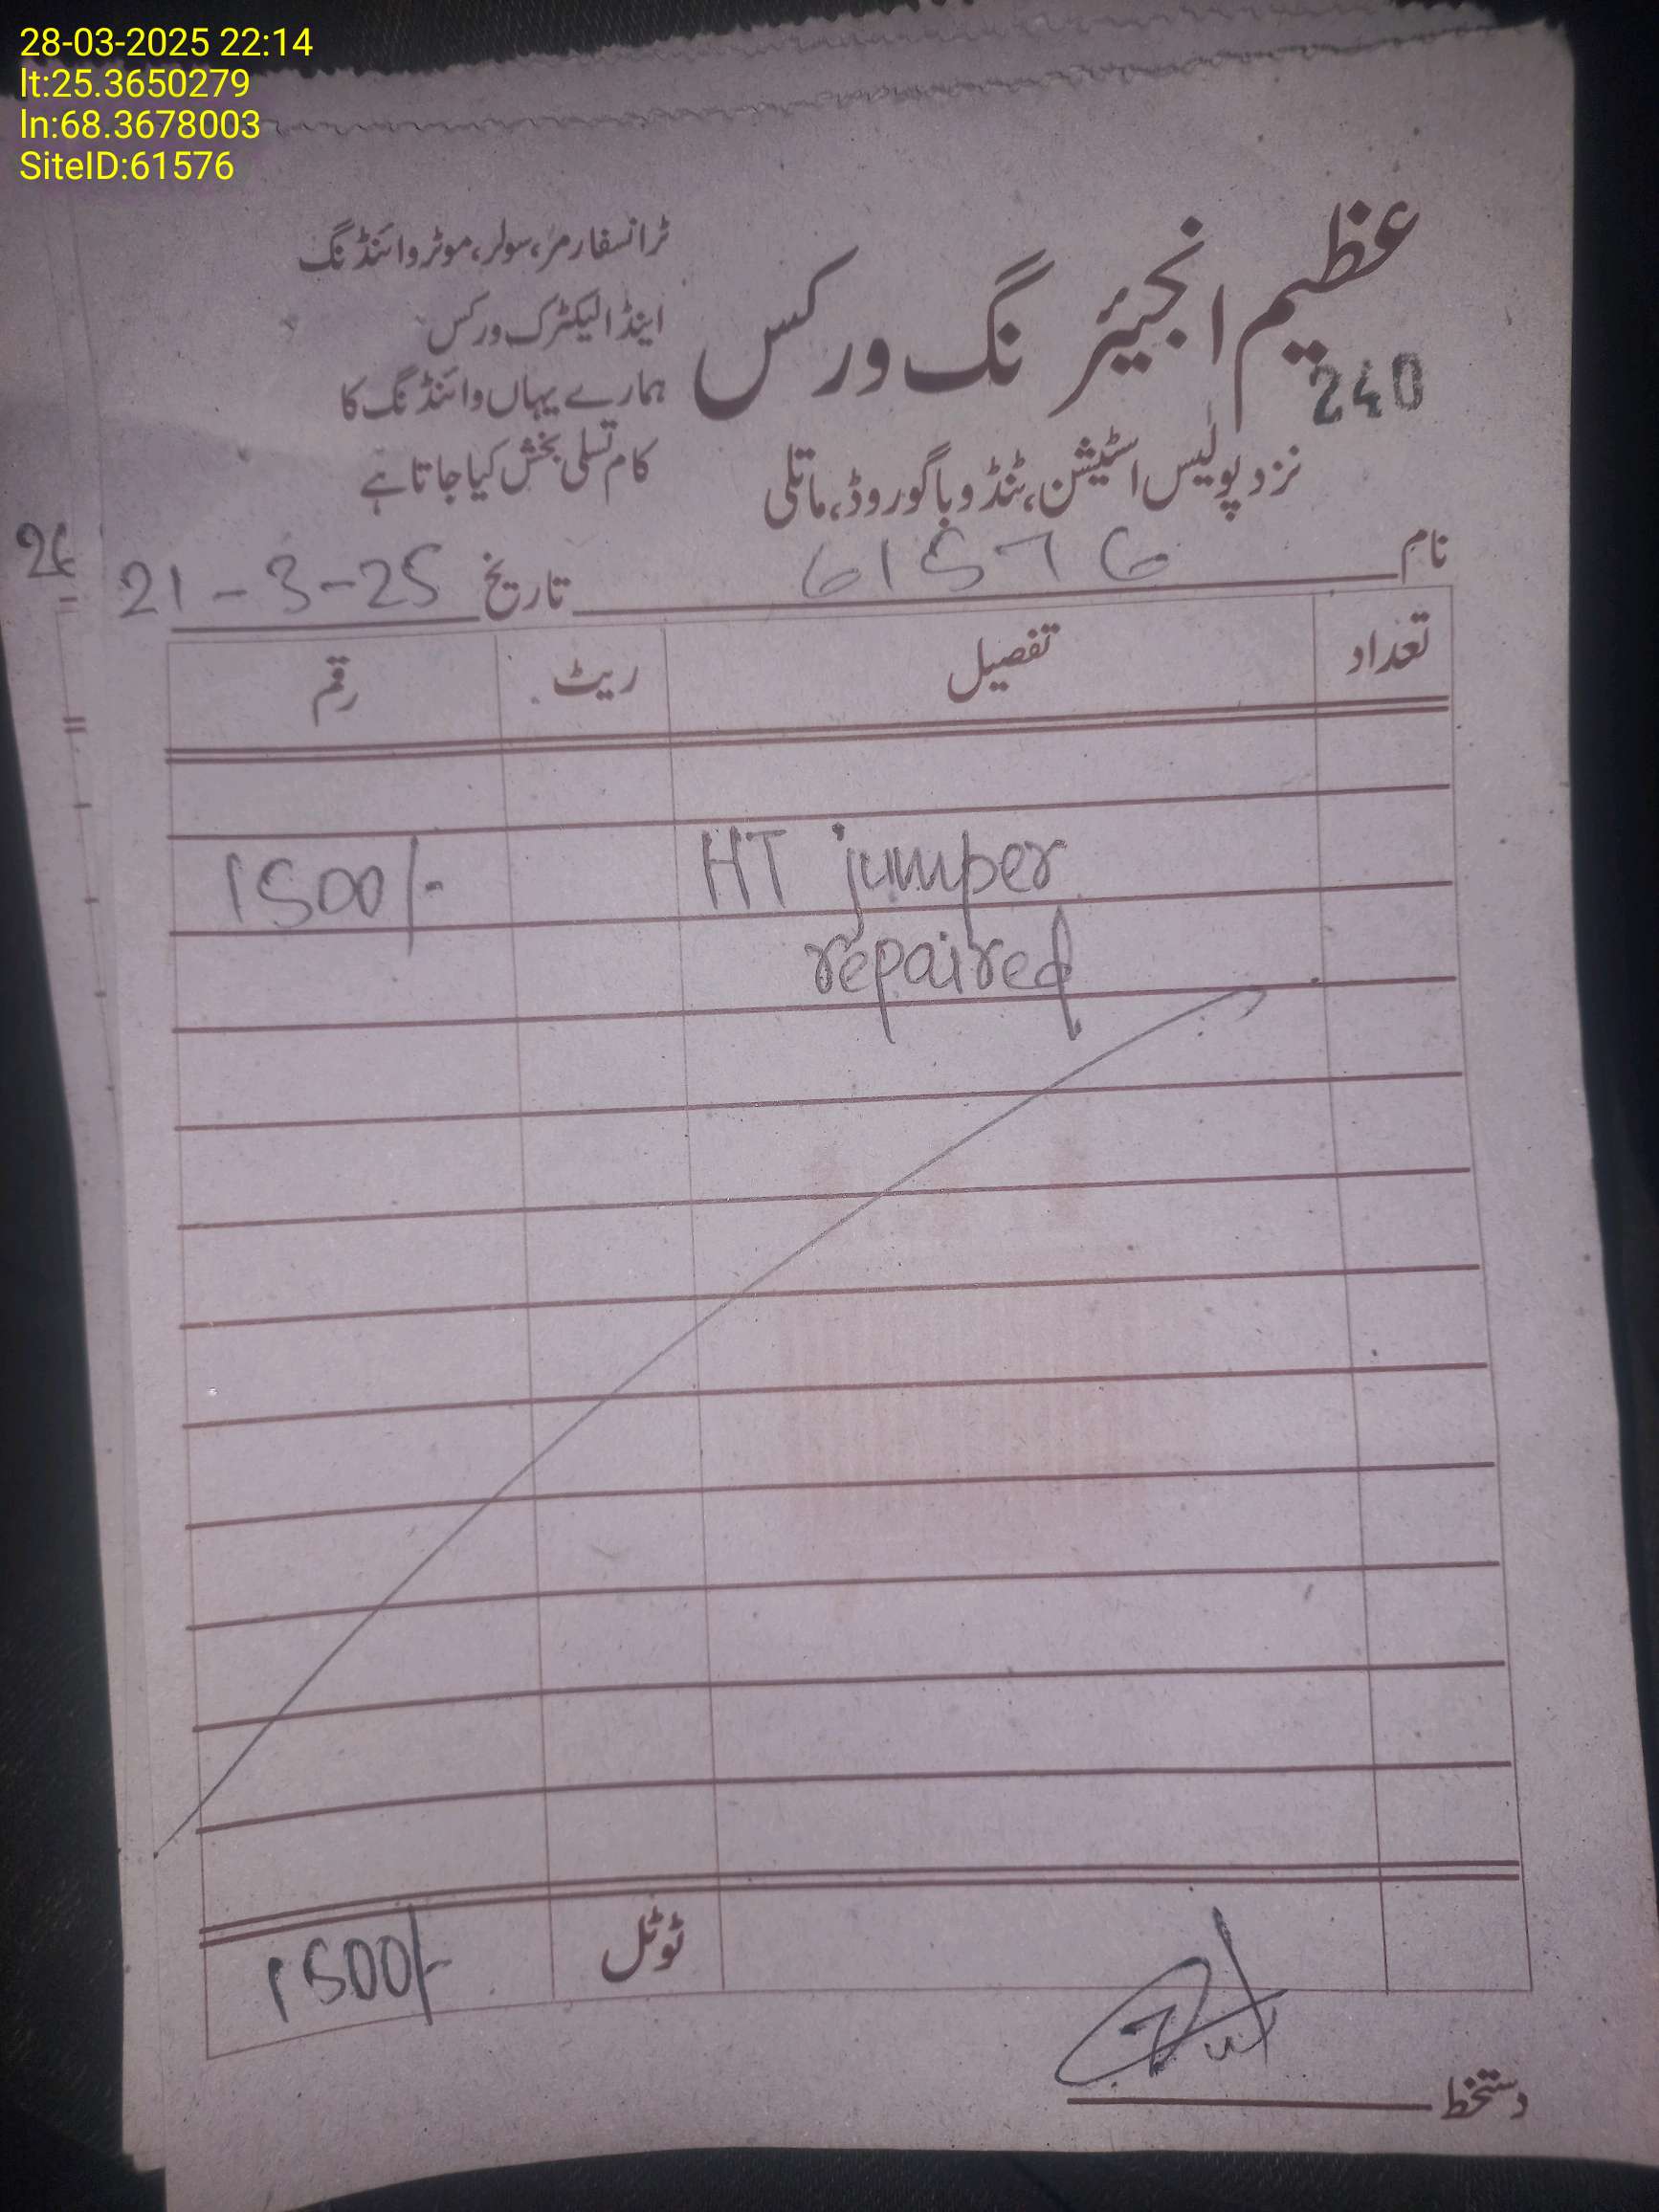 28-03-2025 22:14
lt:25.3650279
ln:68.3678003
SiteID:61576
عظیم انجیئرنگ ورکس
240
نزد پولیس اسٹیشن، ٹنڈو باگو روڈ، ماتلی
ٹرانسفارمر، سولر، موٹر وائنڈنگ
اینڈ الیکٹرک ورکس
ہمارے یہاں وائنڈنگ کا
کام تسلی بخش کیا جاتا ہے
نام 61576 تاریخ 21-3-25
تعداد تفصیل ریٹ رقم
HT jumper 1500/-
repaired
ٹوٹل 1500/-
دستخط